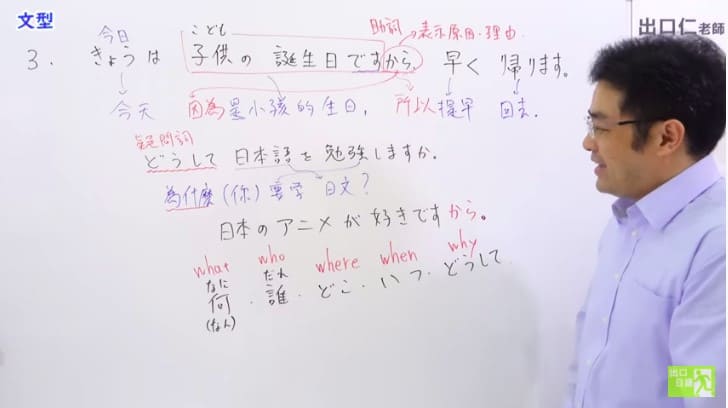 文型
出口仁老師
今日 こども 助詞 表示原因・理由
3. きょうは 子供の 誕生日ですから、早く 帰ります。
今天 因為是小孩的生日, 所以提早 回去.
疑問詞
どうして 日本語を勉強しますか.
為什麼(你)要学 日文?
日本のアニメが好きですから。
what who where when why
なに だれ
何・誰・どこ・いつ・どうして
(なん)
出口日語